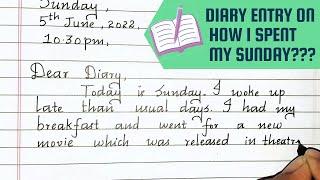 Sunday,
5th June, 2022.
10:30pm.
DIARY ENTRY ON
HOW I SPENT
MY SUNDAY???
Dear Diary,
Today is Sunday. I woke up
late than usual days. I had my
breakfast and went for a new
movie which was released in theatre